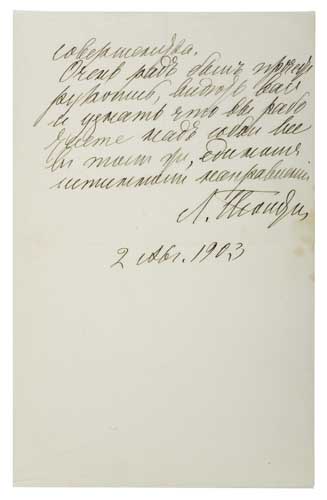 совершенства.
Очень радъ былъ прочесть
рукопись, видѣть васъ
и узнать что вы рабо
таете надъ собой все
въ томъ же, единомъ
истинномъ направленiи
Л. Толстой
2 Авг. 1903